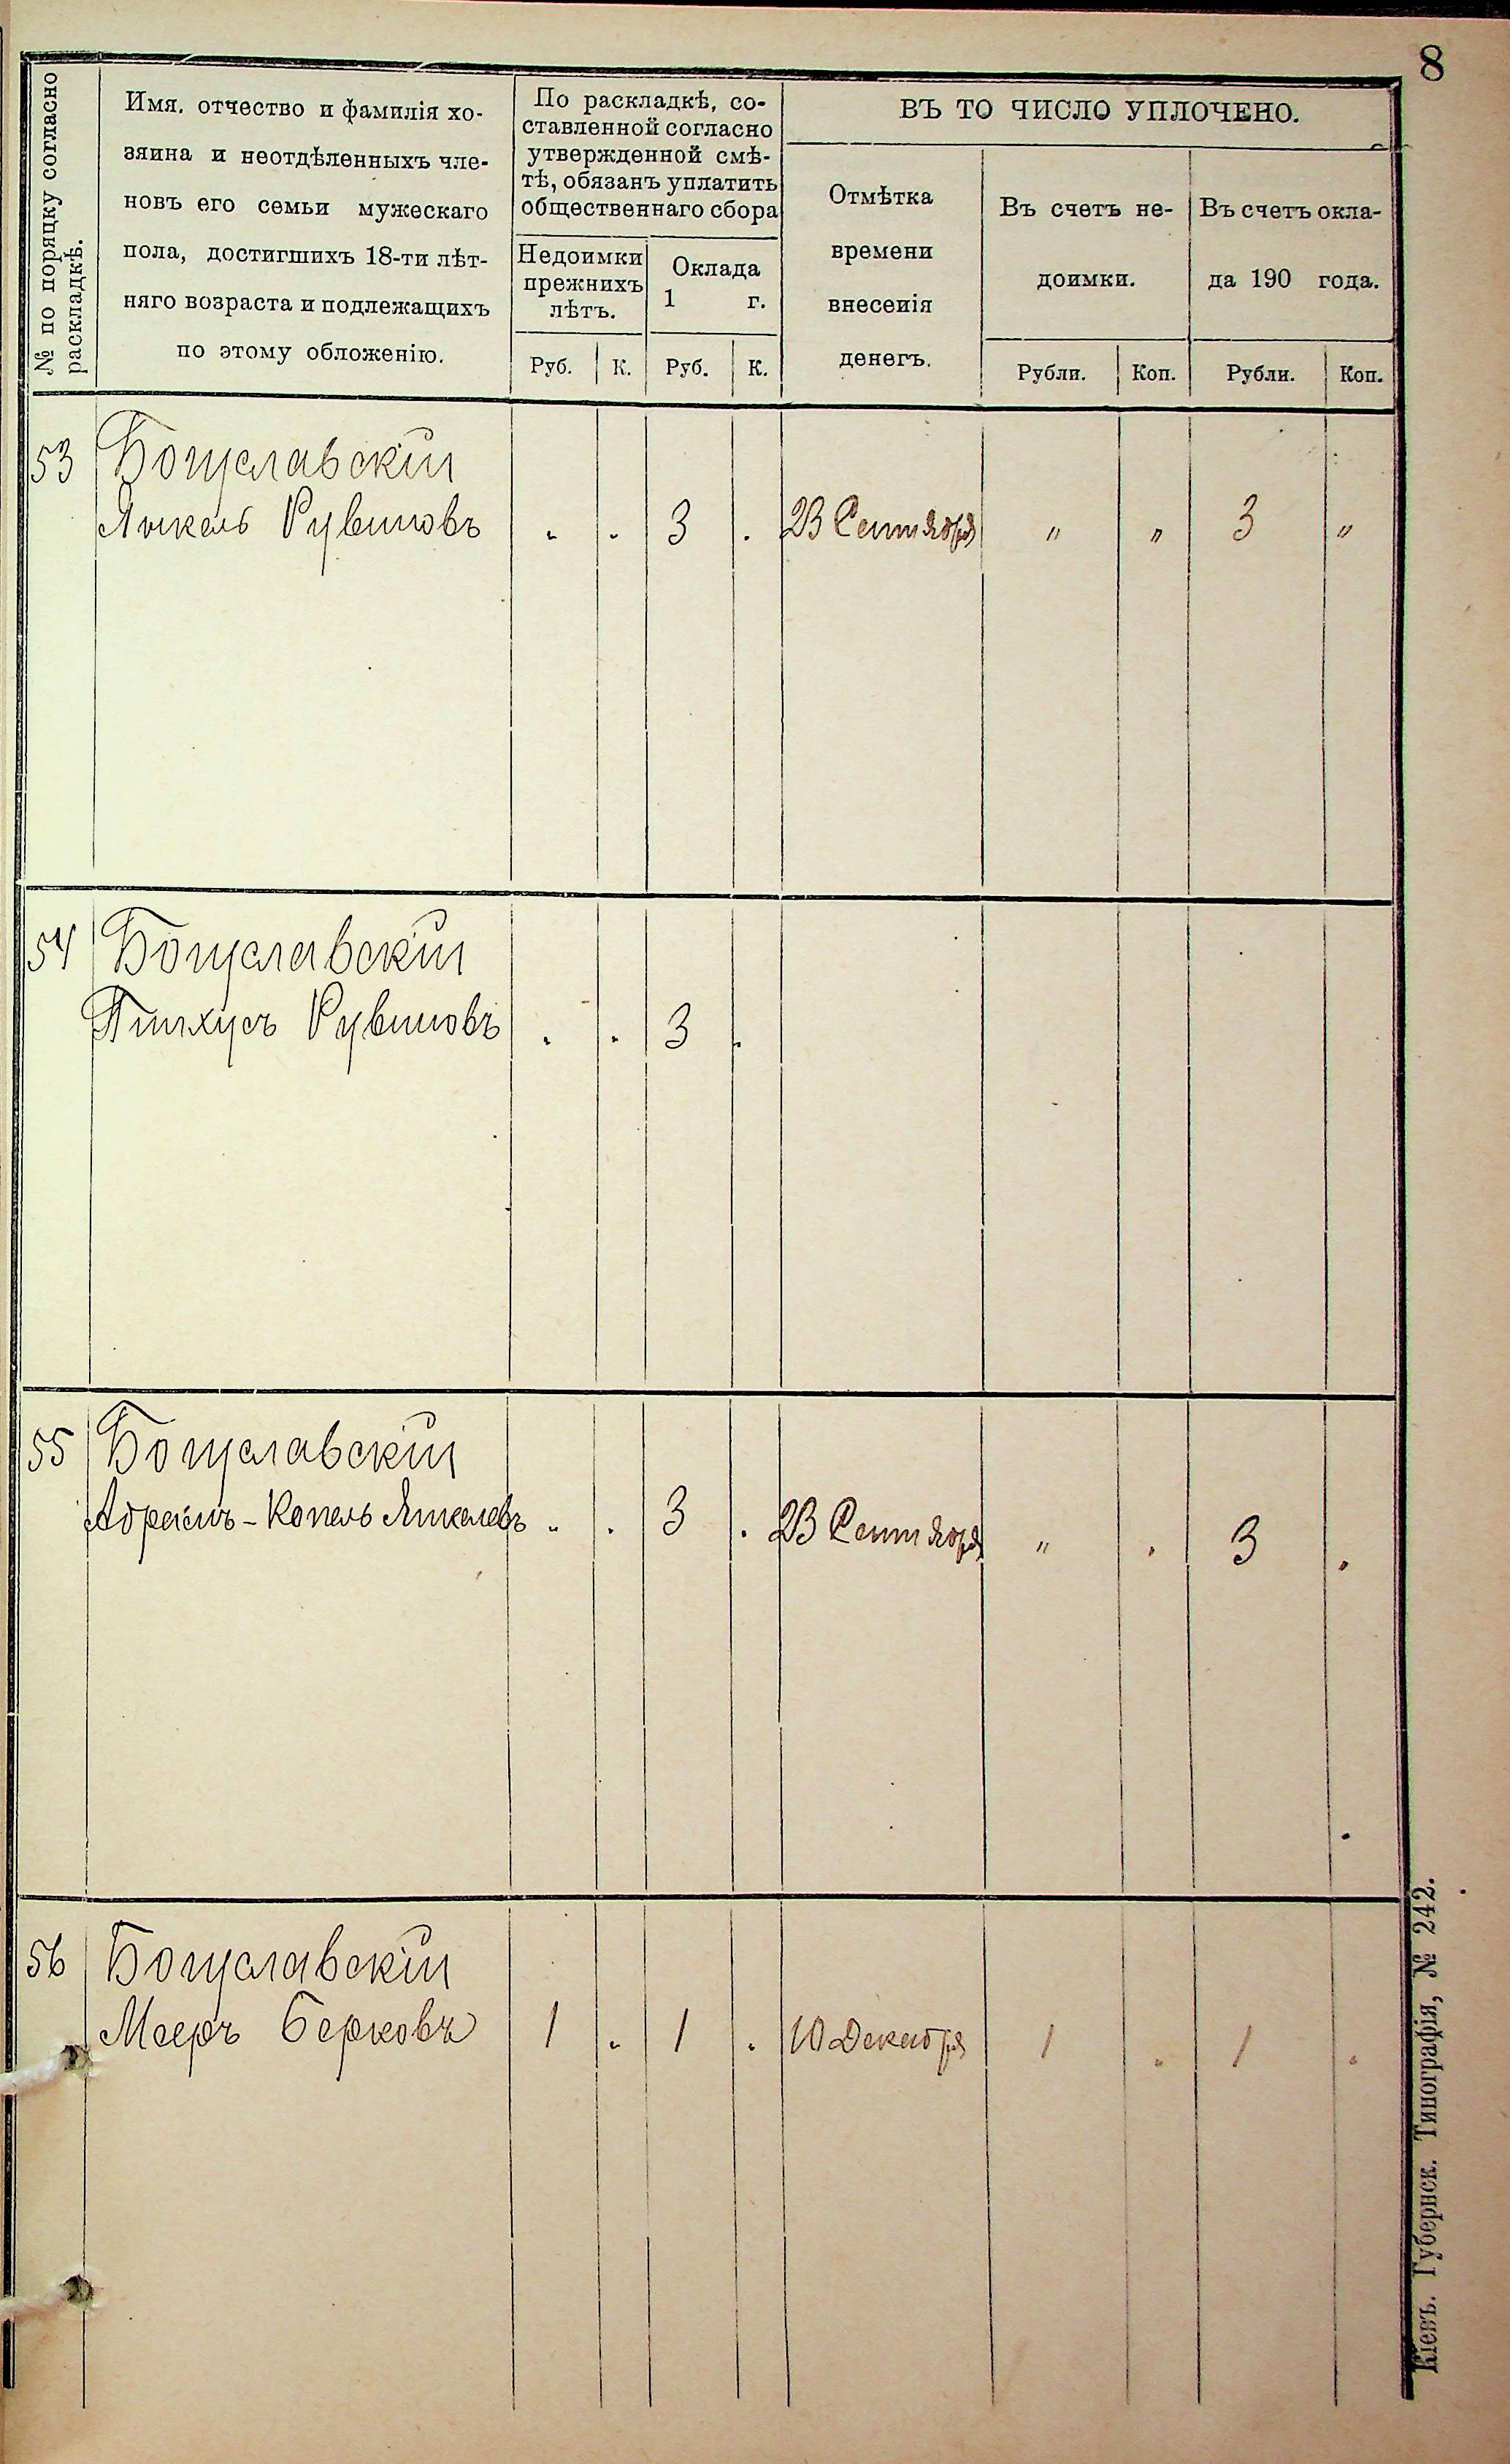 8
№ по поряцку согласно
раскладкѣ.
Имя, отчество и фамилія хо-
зяина и неотдѣленныхъ чле-
новъ его семьи мужескаго
пола, достигшихъ 18-ти лѣт-
няго возраста и подлежащихъ
по этому обложенію.
По раскладкѣ, со-
ставленной согласно
утвержденной смѣ-
тѣ, обязанъ уплатить
общественнаго сбора
Недоимки
прежнихъ
лѣтъ.
Оклада
1 г.
Руб. К. Руб. К.
ВЪ ТО ЧИСЛО УПЛОЧЕНО.
Отмѣтка
времени
внесенія
денегъ.
Въ счетъ не-
доимки.
Въ счетъ окла-
да 190 года.
Рубли. Коп. Рубли. Коп.
53 Богуславскій
Янкель Рувиновъ . . 3 . 23 Сентября " " 3 "
54 Богуславскій
Пинхусъ Рувиновъ . . 3 .
55 Богуславскій
Абрамъ-Копель Янкелевъ " . 3 . 23 Сентября " . 3 .
56 Богуславскій
Мееръ Берковъ 1 . 1 . 10 Декабря 1 . 1 .
Кіевъ. Губернск. Типографія, № 242.